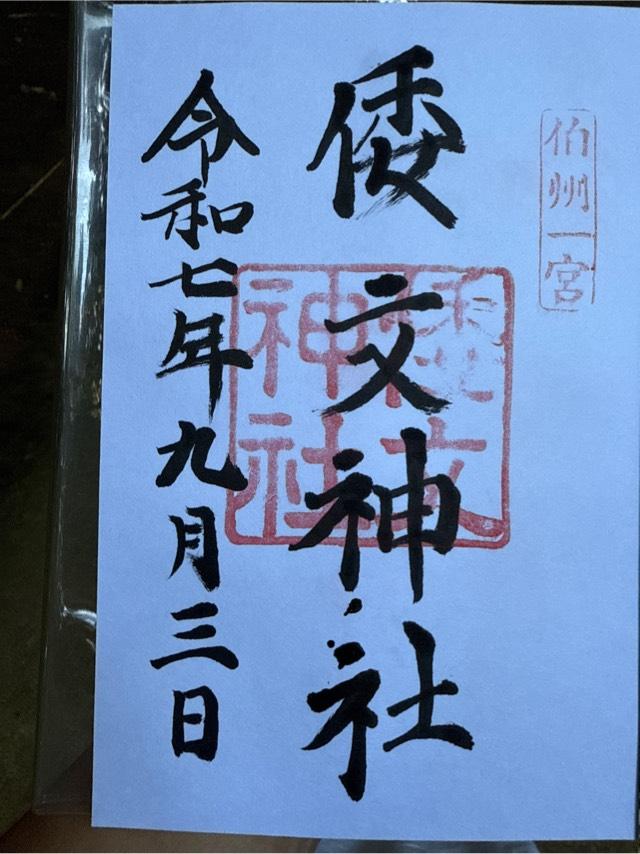 伯州一宮
倭文神社
倭文
神社
令和七年九月三日